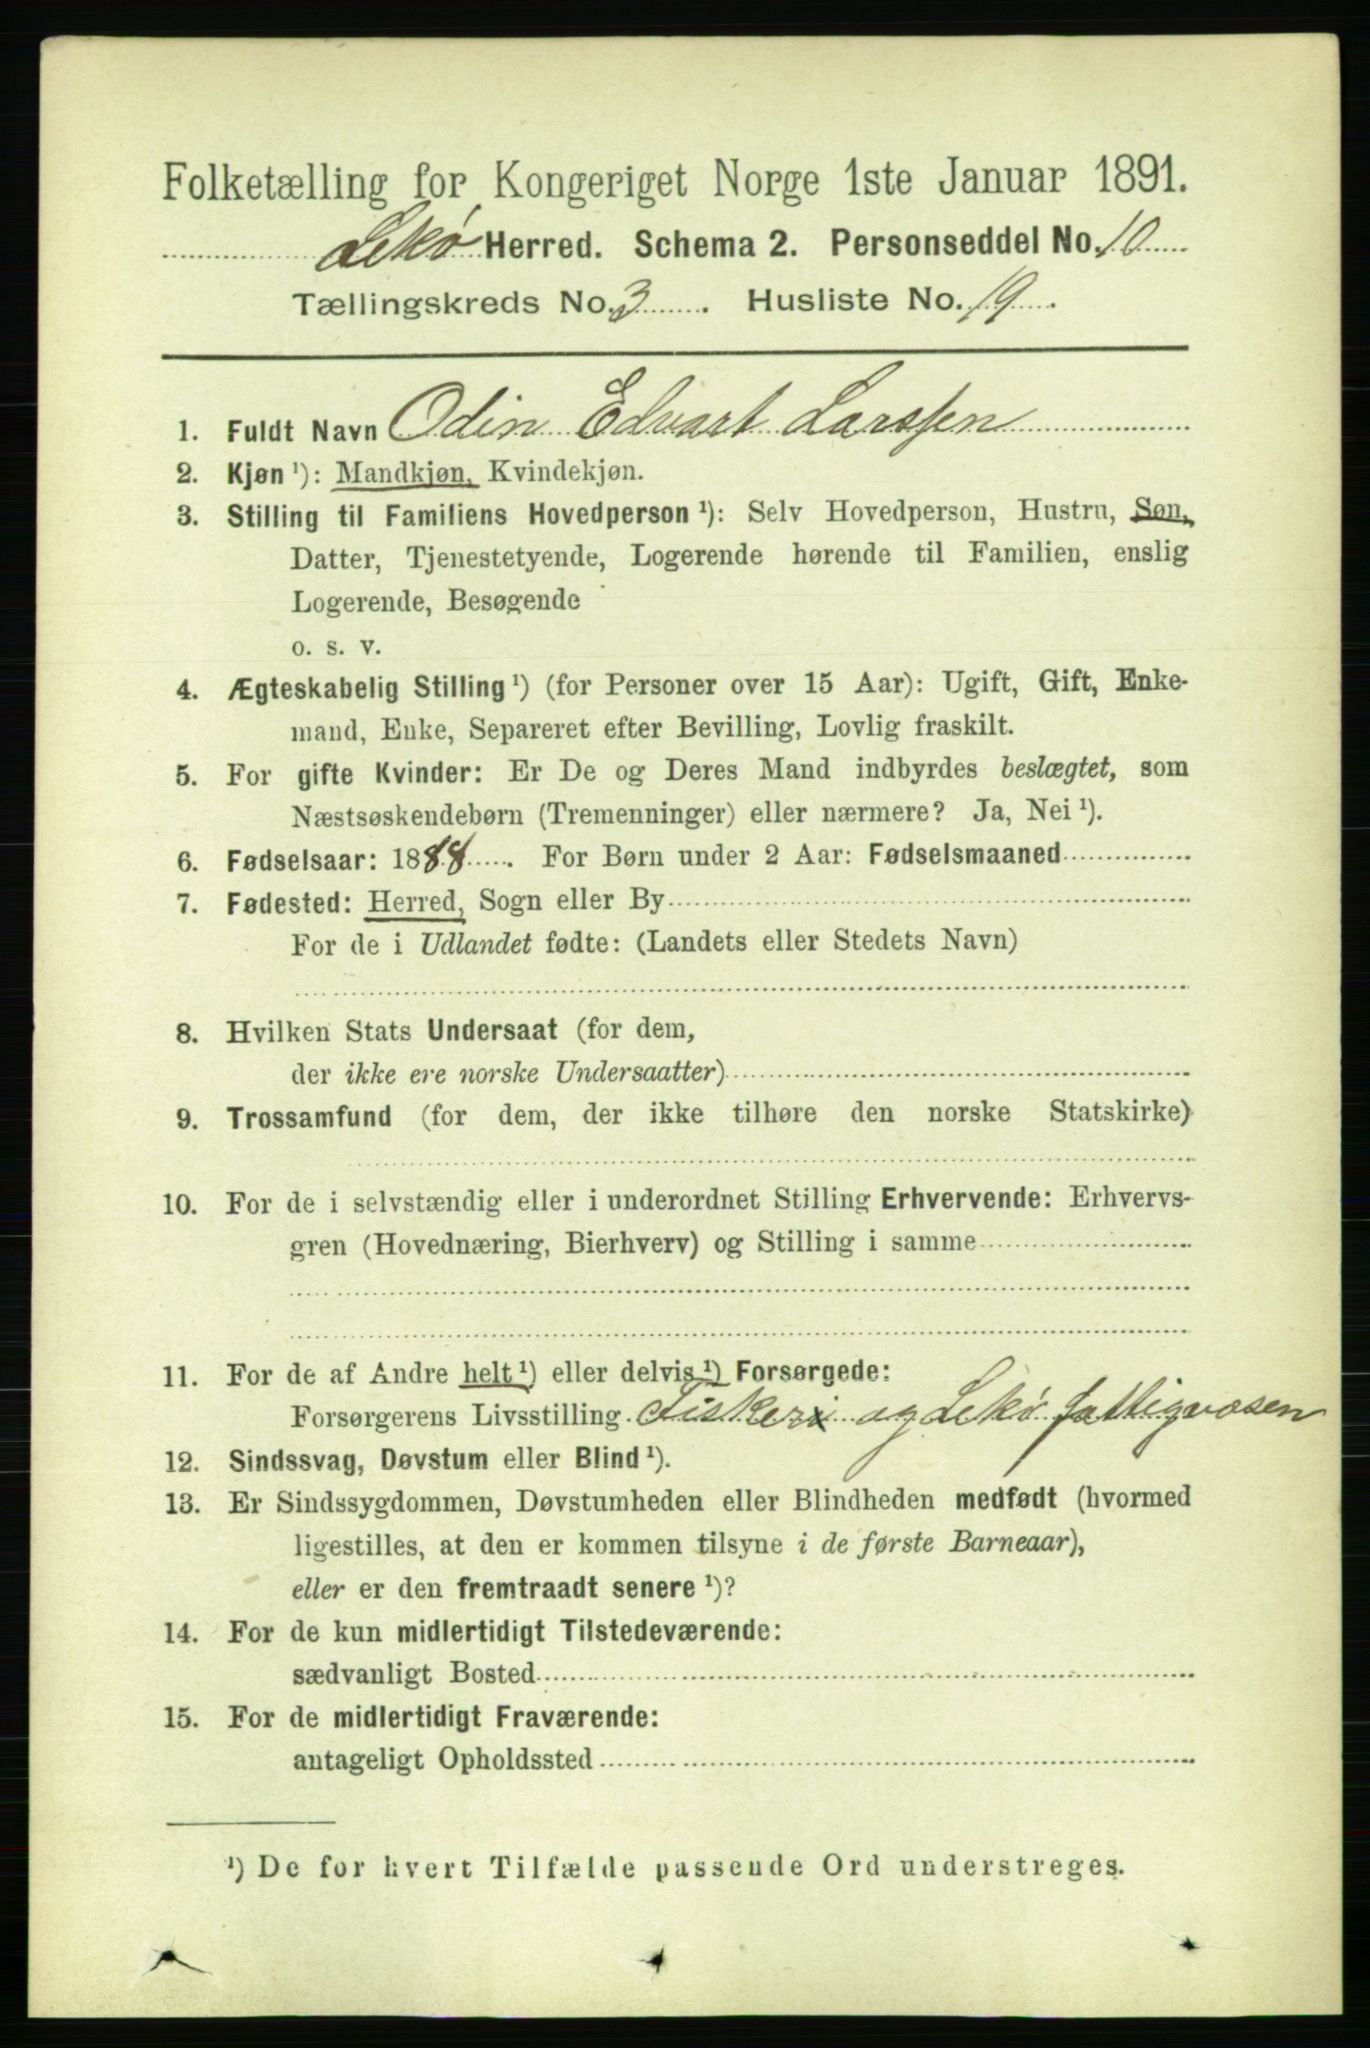 Folketælling for Kongeriget Norge 1ste Januar 1891.
Lekø Herred. Schema 2. Personseddel No. 10
Tællingskreds No. 3. Husliste No. 19.
1. Fuldt Navn Odin Edvart Larssen
2. Kjøn ¹): Mandkjøn, Kvindekjøn.
3. Stilling til Familiens Hovedperson ¹): Selv Hovedperson, Hustru, Søn,
Datter, Tjenestetyende, Logerende hørende til Familien, enslig
Logerende, Besøgende
o. s. v.
4. Ægteskabelig Stilling ¹) (for Personer over 15 Aar): Ugift, Gift, Enke-
mand, Enke, Separeret efter Bevilling, Lovlig fraskilt.
5. For gifte Kvinder: Er De og Deres Mand indbyrdes beslægtet, som
Næstsøskendebørn (Tremenninger) eller nærmere? Ja, Nei ¹).
6. Fødselsaar: 1888. For Børn under 2 Aar: Fødselsmaaned
7. Fødested: Herred, Sogn eller By
For de i Udlandet fødte: (Landets eller Stedets Navn)
8. Hvilken Stats Undersaat (for dem,
der ikke ere norske Undersaatter)
9. Trossamfund (for dem, der ikke tilhøre den norske Statskirke)
10. For de i selvstændig eller i underordnet Stilling Erhvervende: Erhvervs-
gren (Hovednæring, Bierhverv) og Stilling i samme
11. For de af Andre helt ¹) eller delvis ¹) Forsørgede:
Forsørgerens Livsstilling Fisker og Lekø fattigvæsen
12. Sindssvag, Døvstum eller Blind ¹).
13. Er Sindssygdommen, Døvstumheden eller Blindheden medfødt (hvormed
ligestilles, at den er kommen tilsyne i de første Barneaar),
eller er den fremtraadt senere ¹)?
14. For de kun midlertidigt Tilstedeværende:
sædvanligt Bosted
15. For de midlertidigt Fraværende:
antageligt Opholdssted
¹) De for hvert Tilfælde passende Ord understreges.